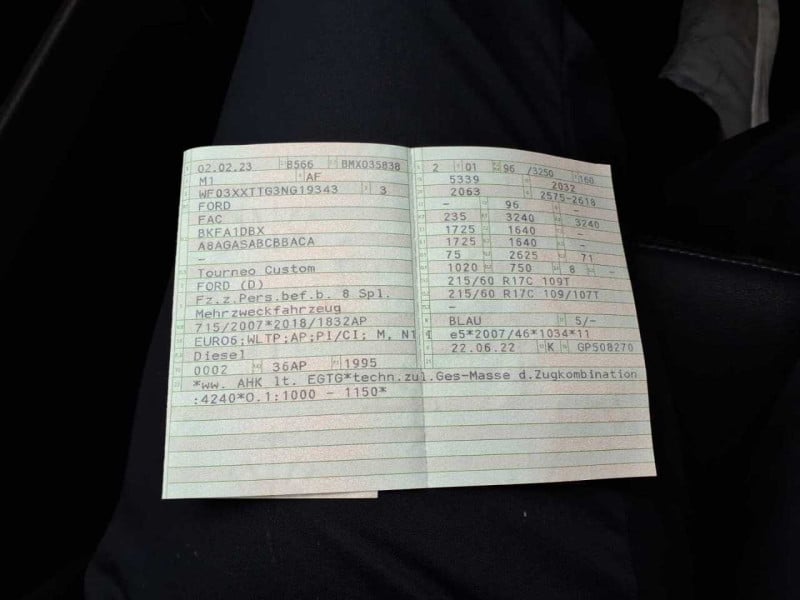 02.02.23 8566 BMX035838
M1 AF
WF03XXTTG3NG19343 3
FORD
FAC
BKFA1DBX
A8AGASABCBBACA
–
Tourneo Custom
FORD (D)
Fz.z.Pers.bef.b. 8 Spl.
Mehrzweckfahrzeug
715/2007*2018/1832AP
EURO6;WLTP;AP;PI/CI; M, N1
Diesel
0002 36AP 1995
2 01 96 /3250 360
5339 2032
2063 2575-2618
– 96 –
235 3240 3240
1725 1640 –
1725 1640 –
75 2625 71
1020 750 8 –
215/60 R17C 109T
215/60 R17C 109/107T
–
BLAU 5/–
e5*2007/46*1034*11
22.06.22 K GP508270
*ww. AHK lt. EGTG*techn.zul.Ges-Masse d.Zugkombination
:4240*O.1:1000 - 1150*